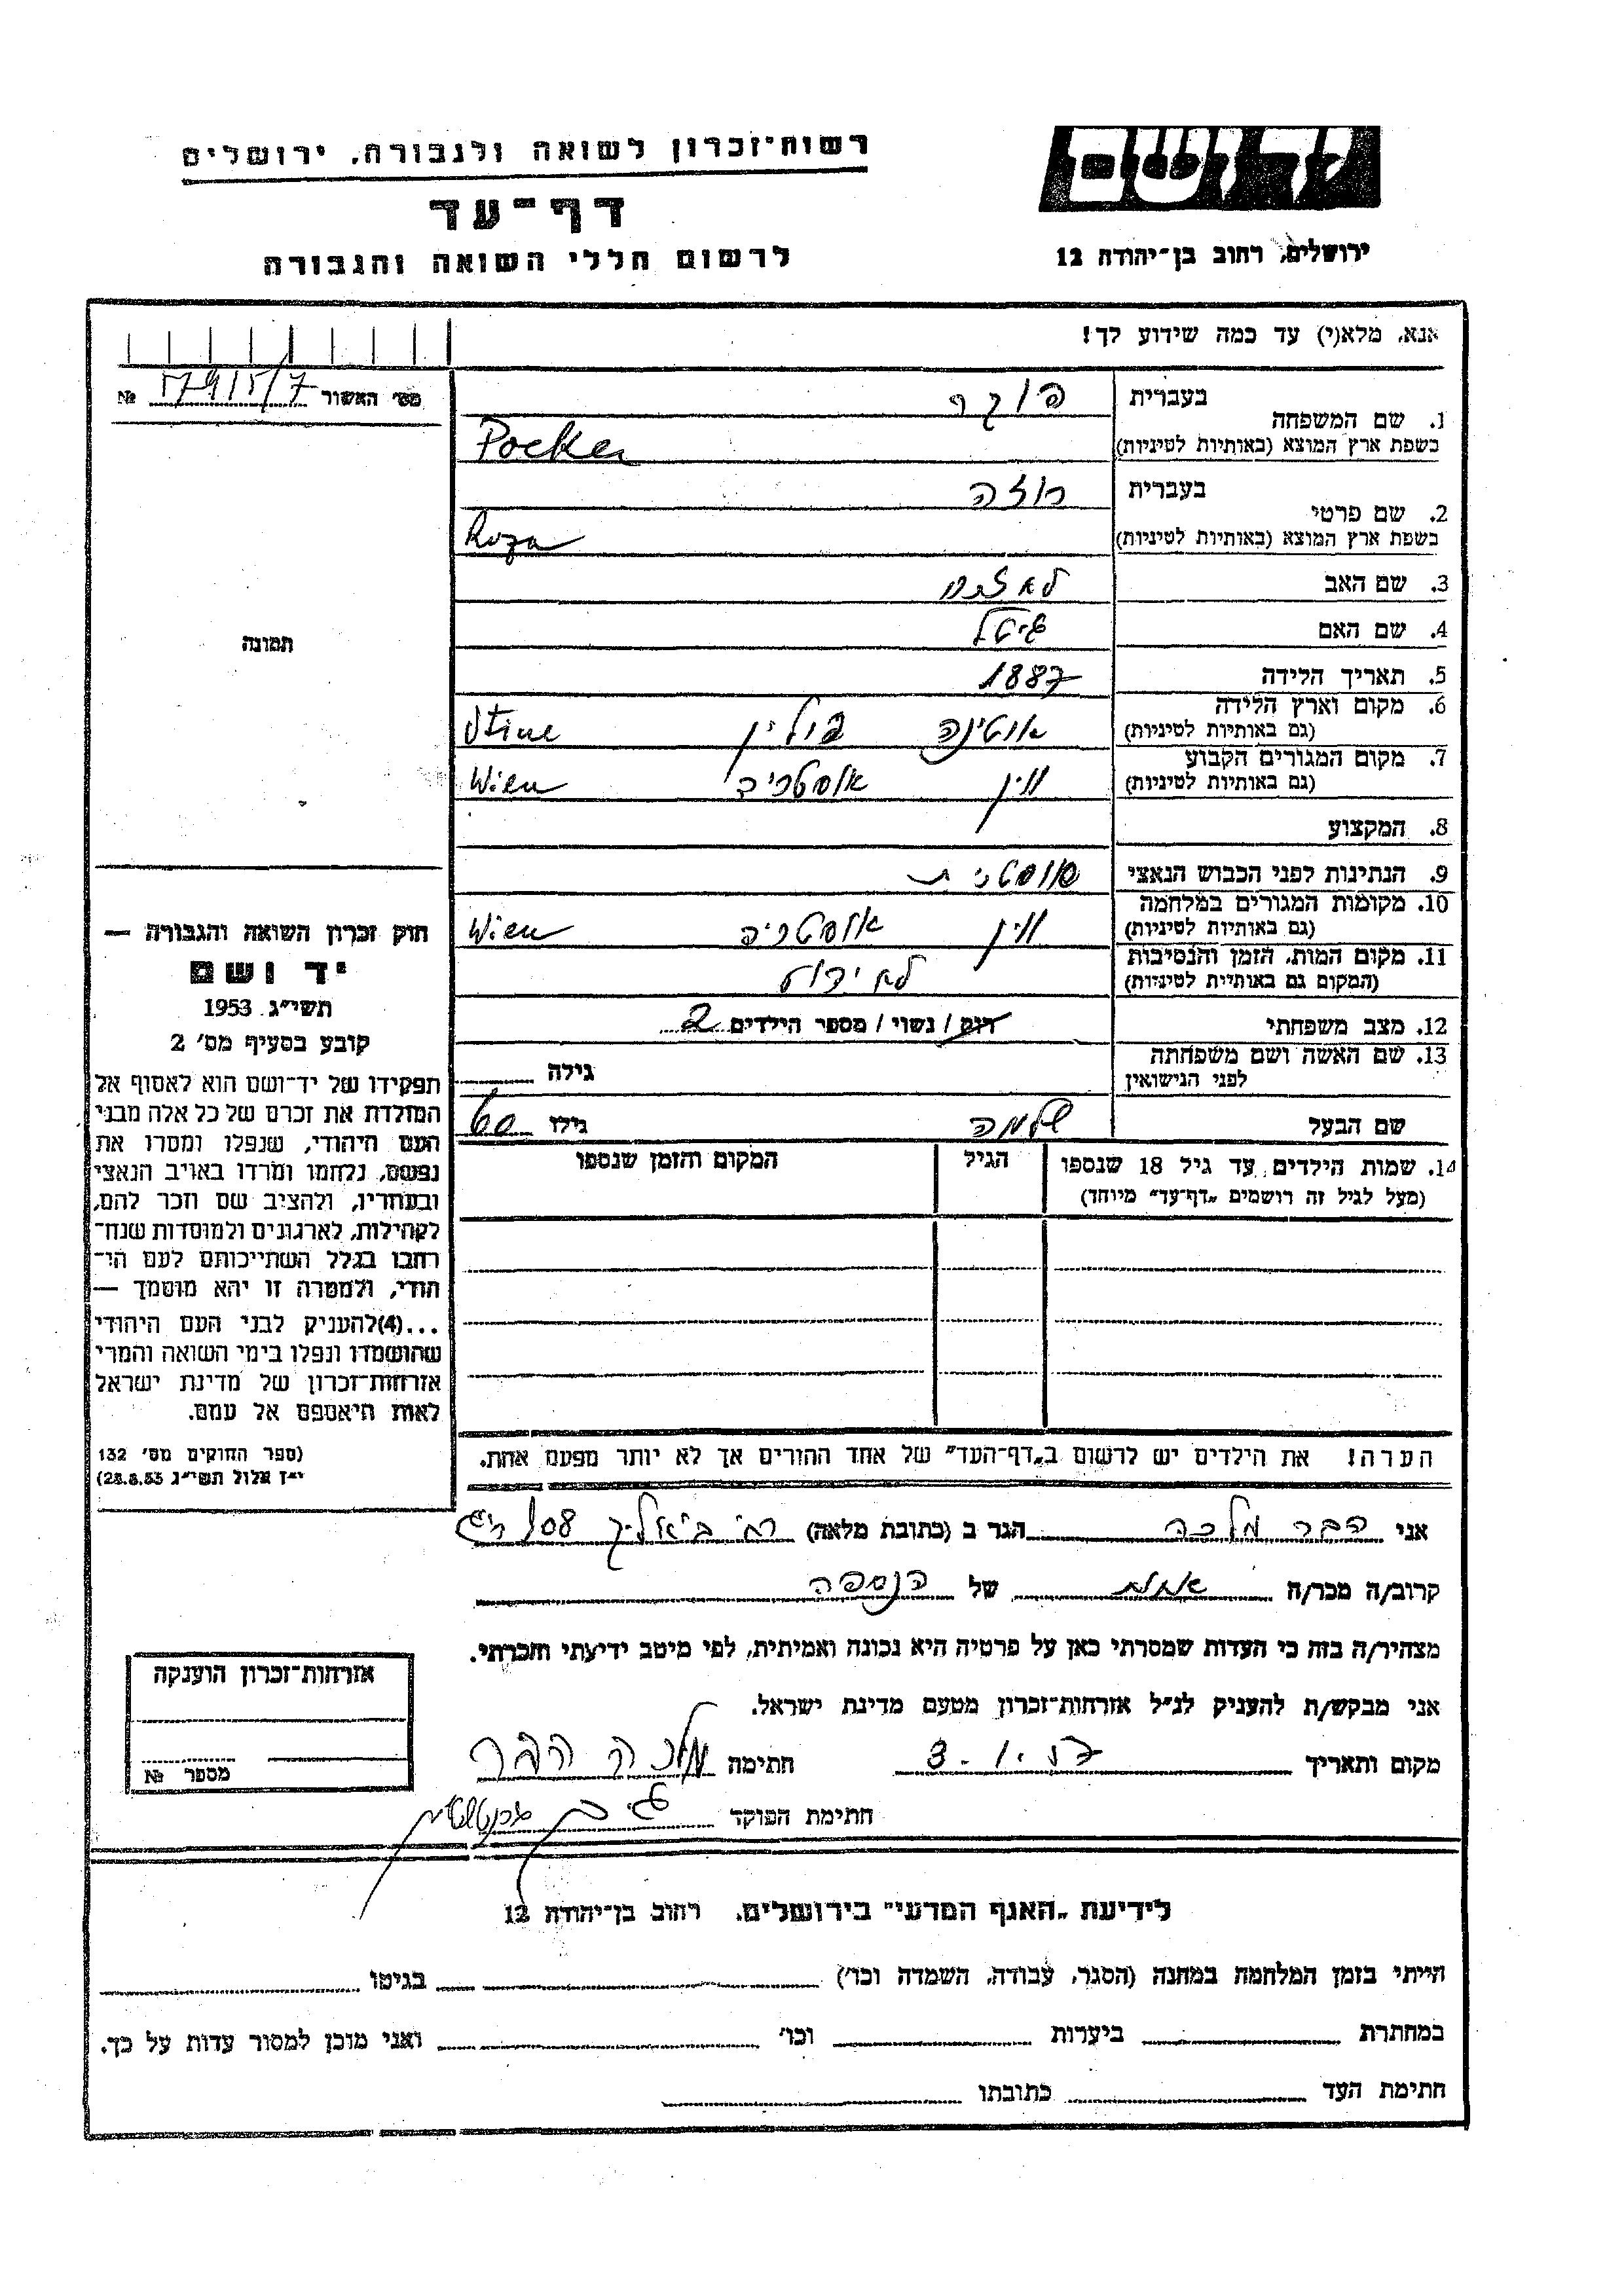 יד ושם
ירושלים, רחוב בן־יהודה 12
רשות־זכרון לשואה ולגבורה, ירושלים
דף־עד
לרשום חללי השואה והגבורה
אנא, מלא(י) עד כמה שידוע לך!
בעברית פוקר
1. שם המשפחה
בשפת ארץ המוצא (באותיות לטיניות) Pocker
בעברית רוזה
2. שם פרטי
בשפת ארץ המוצא (באותיות לטיניות) Roza
3. שם האב
4. שם האם גיטל
5. תאריך הלידה 1887
6. מקום וארץ הלידה אוטינה פולין Utine
(גם באותיות לטיניות)
7. מקום המגורים הקבוע וין אוסטריה Wien
(גם באותיות לטיניות)
8. המקצוע
9. הנתינות לפני הכבוש הנאצי אוסטרית
10. מקומות המגורים במלחמה וין אוסטריה Wien
(גם באותיות לטיניות)
11. מקום המות, הזמן והנסיבות לא ידוע
(המקום גם באותיות לטיניות)
12. מצב משפחתי רוק / נשוי / מספר הילדים 2
13. שם האשה ושם משפחתה גילה
לפני הנישואין
שם הבעל שלמה גילו 60
14. שמות הילדים עד גיל 18 שנספו הגיל המקום והזמן שנספו
(מעל לגיל זה רושמים „דף־עד" מיוחד)
הערה! את הילדים יש לרשום ב„דף־העד" של אחד ההורים אך לא יותר מפעם אחת.
מס' האשור №
תמונה
חוק זכרון השואה והגבורה —
יד ושם
תשי"ג 1953
קובע בסעיף מס' 2
תפקידו של יד־ושם הוא לאסוף אל
המולדת את זכרם של כל אלה מבני
העם היהודי, שנפלו ומסרו את
נפשם, נלחמו ומרדו באויב הנאצי
ובעוזריו, ולהציב שם וזכר להם,
לקהילות, לארגונים ולמוסדות שנח־
רבו בגלל השתייכותם לעם הי־
הודי, ולמטרה זו יהא מוסמך —
...(4)להעניק לבני העם היהודי
שהושמדו ונפלו בימי השואה והמרי
אזרחות־זכרון של מדינת ישראל
לאות היאספם אל עמם.
(ספר החוקים מס' 132
י"ז אלול תשי"ג 28.8.53)
אני הבר מלכה הגר ב (כתובת מלאה) רח' ביאליק 108 ר"ג
קרוב/ה מכר/ה אחות של הנספה
מצהיר/ה בזה כי העדות שמסרתי כאן על פרטיה היא נכונה ואמיתית, לפי מיטב ידיעתי והכרתי.
אני מבקש/ת להעניק לנ"ל אזרחות־זכרון מטעם מדינת ישראל.
מקום ותאריך חתימה מלכה הבר
חתימת הפוקד
אזרחות־זכרון הוענקה
מספר №
לידיעת „האגף המדעי" בירושלים, רחוב בן־יהודה 12
הייתי בזמן המלחמה במחנה (הסגר, עבודה, השמדה וכו') בגיטו
במחתרת ביערות וכו' ואני מוכן למסור עדות על כך.
חתימת העד כתובתו